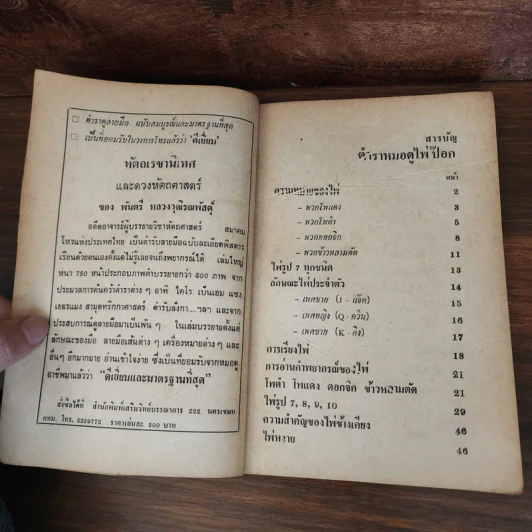 □ ตำราดูลายมือ ฉบับสมบูรณ์และมาตรฐานที่สุด
□ เป็นที่ยอมรับในวงการโหรแล้วว่า 'ดีเยี่ยม'
หัตถเรขานิเทศ
และดวงหัตถศาสตร์
ของ พันตรี หลวงวุฒิรณพัสดุ์
อดีตอาจารย์ผู้บรรยายวิชาหัตถศาสตร์ สมาคม
โหรแห่งประเทศไทย เป็นตำรับลายมือฉบับละเอียดพิสดาร
เรียนด้วยตนเองตั้งแต่ไม่รู้เลยจนถึงพยากรณ์ได้ เล่มใหญ่
หนา 750 หน้าประกอบภาพคำบรรยายกว่า 800 ภาพ จาก
ประมวลการค้นคว้าตำราต่าง ๆ อาทิ ไคโร เบ็นแฮม แซง
เยอรแมง สามุทริกกาศาสตร์ ตำรับลังกา...ฯลฯ และจาก
ประสบการณ์ดูลายมือมาเป็นพัน ๆ ในเล่มบรรยายตั้งแต่
ลักษณะของมือ ลายมือเส้นต่าง ๆ เครื่องหมายต่าง ๆ และ
อื่นๆ อีกมากมาย อ่านเข้าใจง่าย ซึ่งเป็นที่ยอมรับจากหมอดู
อาชีพมาแล้วว่า "ดีเยี่ยมและมาตรฐานที่สุด"
สั่งซื้อได้ที่ สำนักพิมพ์เสริมวิทย์บรรณาคาร 222 นครเขษม
กทม. โทร. 2219772 ราคาเล่มละ 300 บาท
สารบัญ
ตำราหมอดูไพ่ป๊อก
หน้า
ความหมายของไพ่ 2
- พวกโพแดง 3
- พวกโพดำ 5
- พวกดอกจิก 8
- พวกข้าวหลามตัด 11
ไพ่รูป 7 ทุกชนิด 13
ลักษณะไพ่ประจำตัว 14
- เพศชาย (J - แจ๊ค) 15
- เพศหญิง (Q - ควีน) 16
- เพศชาย (K - คิง) 17
การเรียงไพ่ 18
การอ่านคำพยากรณ์ของไพ่ 21
โพดำ โพแดง ดอกจิก ข้าวหลามตัด 21
ไพ่รูป 7, 8, 9, 10 29
ความสำคัญของไพ่ข้างเคียง 46
ไพ่หงาย 46